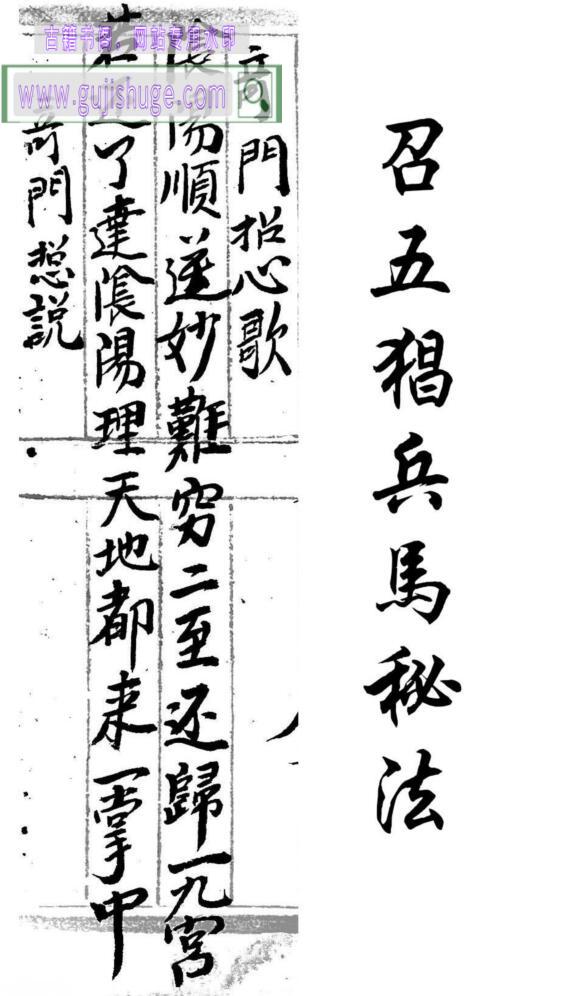 古籍书阁，网站专用水印
www.gujishuge.com
召五猖兵馬秘法
奇門捴歌
陰陽順逆妙難穷二至还歸一九宮
若了達陰陽理天地都来一掌中
奇門愡説